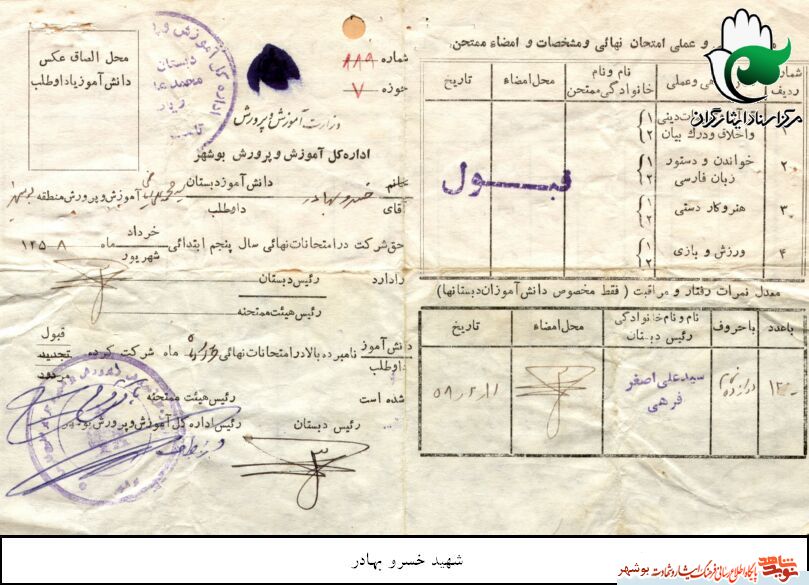 شماره ۸۸۹
حوزه ۷
محل الصاق عکس
دانش‌آموز یا داوطلب
اداره کل آموزش و پرورش
دبستان
وزارت آموزش و پرورش
اداره کل آموزش و پرورش بوشهر
خانم
آقای
خسرو بهادر
دانش‌آموز دبستان
داوطلب
آموزش و پرورش منطقه بوشهر
حق شرکت در امتحانات نهائی سال پنجم ابتدائی
خرداد
شهریور
ماه ۱۳۵۸
را دارد
رئیس دبستان
رئیس هیئت ممتحنه
دانش‌آموز
داوطلب
نامبرده بالا در امتحانات نهائی خرداد ماه شرکت کرده
قبول
تجدید
مردود
شده است
رئیس هیئت ممتحنه
رئیس دبستان
رئیس اداره کل آموزش و پرورش بوشهر
و عملی امتحان نهائی و مشخصات و امضاء ممتحن
شماره ردیف
هی و عملی
نام و نام خانوادگی ممتحن
محل امضاء
تاریخ
و اخلاق و درك بیان
۱
۲
۲
خواندن و دستور زبان فارسی
۱
۲
۳
هنر و کار دستی
۱
۲
۴
ورزش و بازی
۱
۲
قبول
معدل نمرات رفتار و مراقبت ( فقط مخصوص دانش‌آموزان دبستانها)
با عدد
با حروف
نام و نام خانوادگی رئیس دبستان
محل امضاء
تاریخ
سید علی اصغر
فرهی
مرکز اسناد ایثارگران
شهید خسرو بهادر
نوید شاهد
پایگاه اطلاع رسانی فرهنگ ایثار و شهادت بوشهر